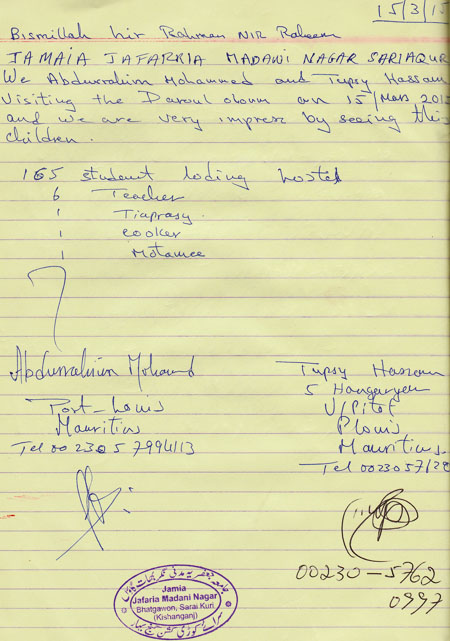 15/3/15
Bismillah hir Rahman NIR Raheem
JAMAIA JAFARKIA MADANI NAGAR SARIAQUR
We Abdurrahim Mohammed and Tupsy Hassam
Visiting the Daroul oloum on 15/Mars 201
and we are very impress by seeing this
children.
165 student loding hostel
6 Teacher
1 Tiaprasy.
1 cooker
1 Motamee
Abdurrahim Mohamed
Port-Louis
Mauritius
Tel 00 230 5 7994113
Tupsy Hassam
5
V/Pitot
P Louis
Mauritius.
Tel 0023057/28
00230-5762
0997
Jamia
Jafaria Madani Nagar
Bhatgawon, Sarai Kuri
(Kishanganj)